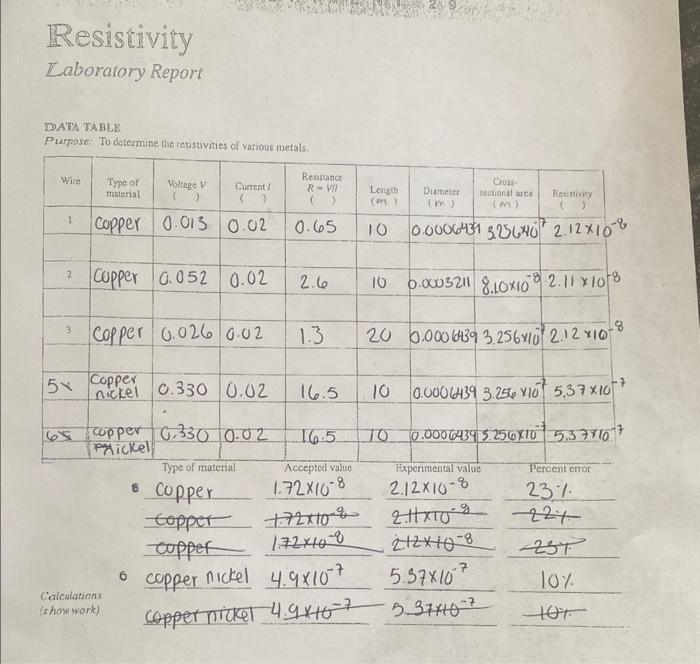 Resistivity
Laboratory Report
DATA TABLE
Purpose: To determine the resistivities of various metals.
Wire Type of material Voltage V ( ) Current I ( ) Resistance R = V/I ( ) Length (m) Diameter (m) Cross-sectional area (m) Resistivity ( )
1 Copper 0.013 0.02 0.65 10 0.0006439 3.256x10^-7 2.12x10^-8
2 Copper 0.052 0.02 2.6 10 0.0003211 8.10x10^-8 2.11x10^-8
3 Copper 0.026 0.02 1.3 20 0.0006439 3.256x10^-7 2.12x10^-8
5 Copper nickel 0.330 0.02 16.5 10 0.0006439 3.256x10^-7 5.37x10^-7
6 copper nickel 0.330 0.02 16.5 10 0.0006439 3.256x10^-7 5.37x10^-7
Type of material Accepted value Experimental value Percent error
copper 1.72x10^-8 2.12x10^-8 23%
copper 1.72x10^-8 2.11x10^-8 22%
copper 1.72x10^-8 2.12x10^-8 23%
copper nickel 4.9x10^-7 5.37x10^-7 10%
Calculations
(show work)
copper nickel 4.9x10^-7 5.37x10^-7 10%